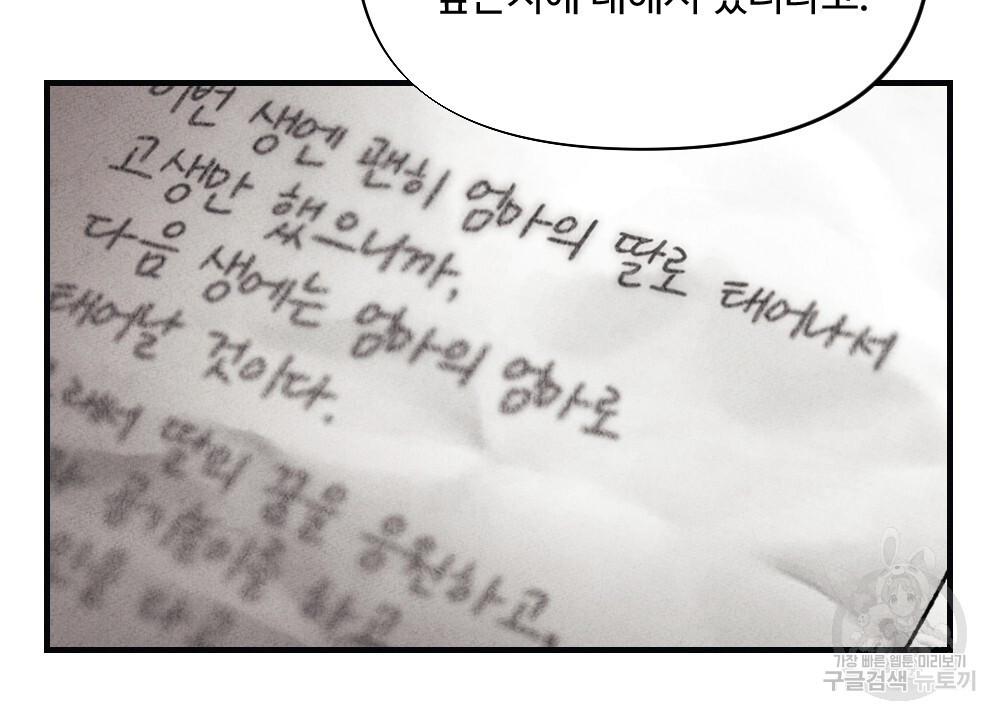 이번 생엔 괜히 엄마의 딸로 태어나서
고생만 했으니까,
다음 생에는 엄마의 엄마로
태어날 것이다.
딸의 꿈을 응원하고,
하고
가장 빠른 웹툰 미리보기
구글검색 뉴토끼